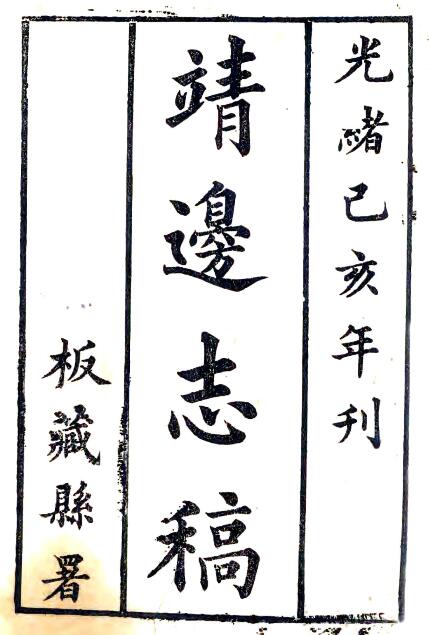 光緒己亥年刊
靖邊志稿
板藏縣署